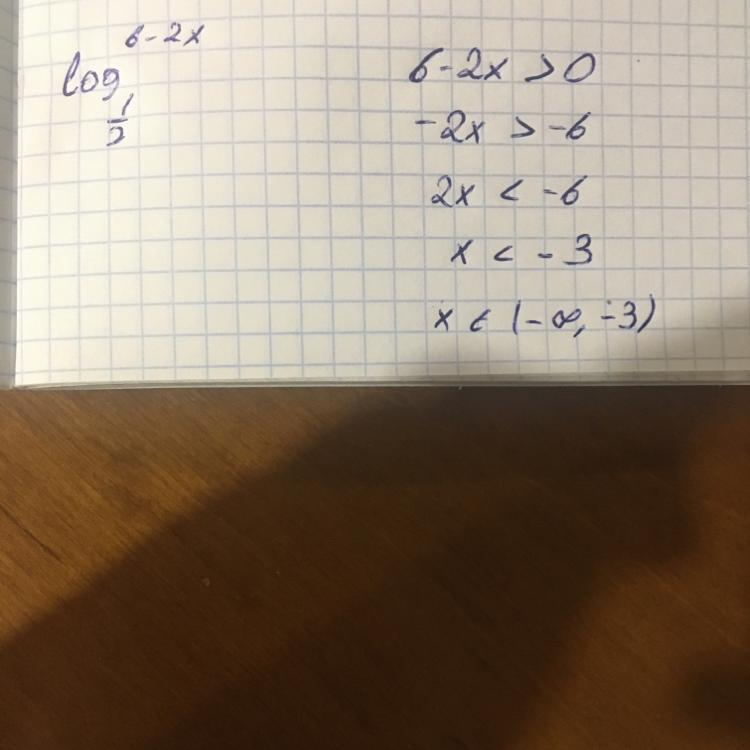 log 1/2 6-2x
6-2x > 0
-2x > -6
2x < -6
x < -3
x ∈ (-∞, -3)